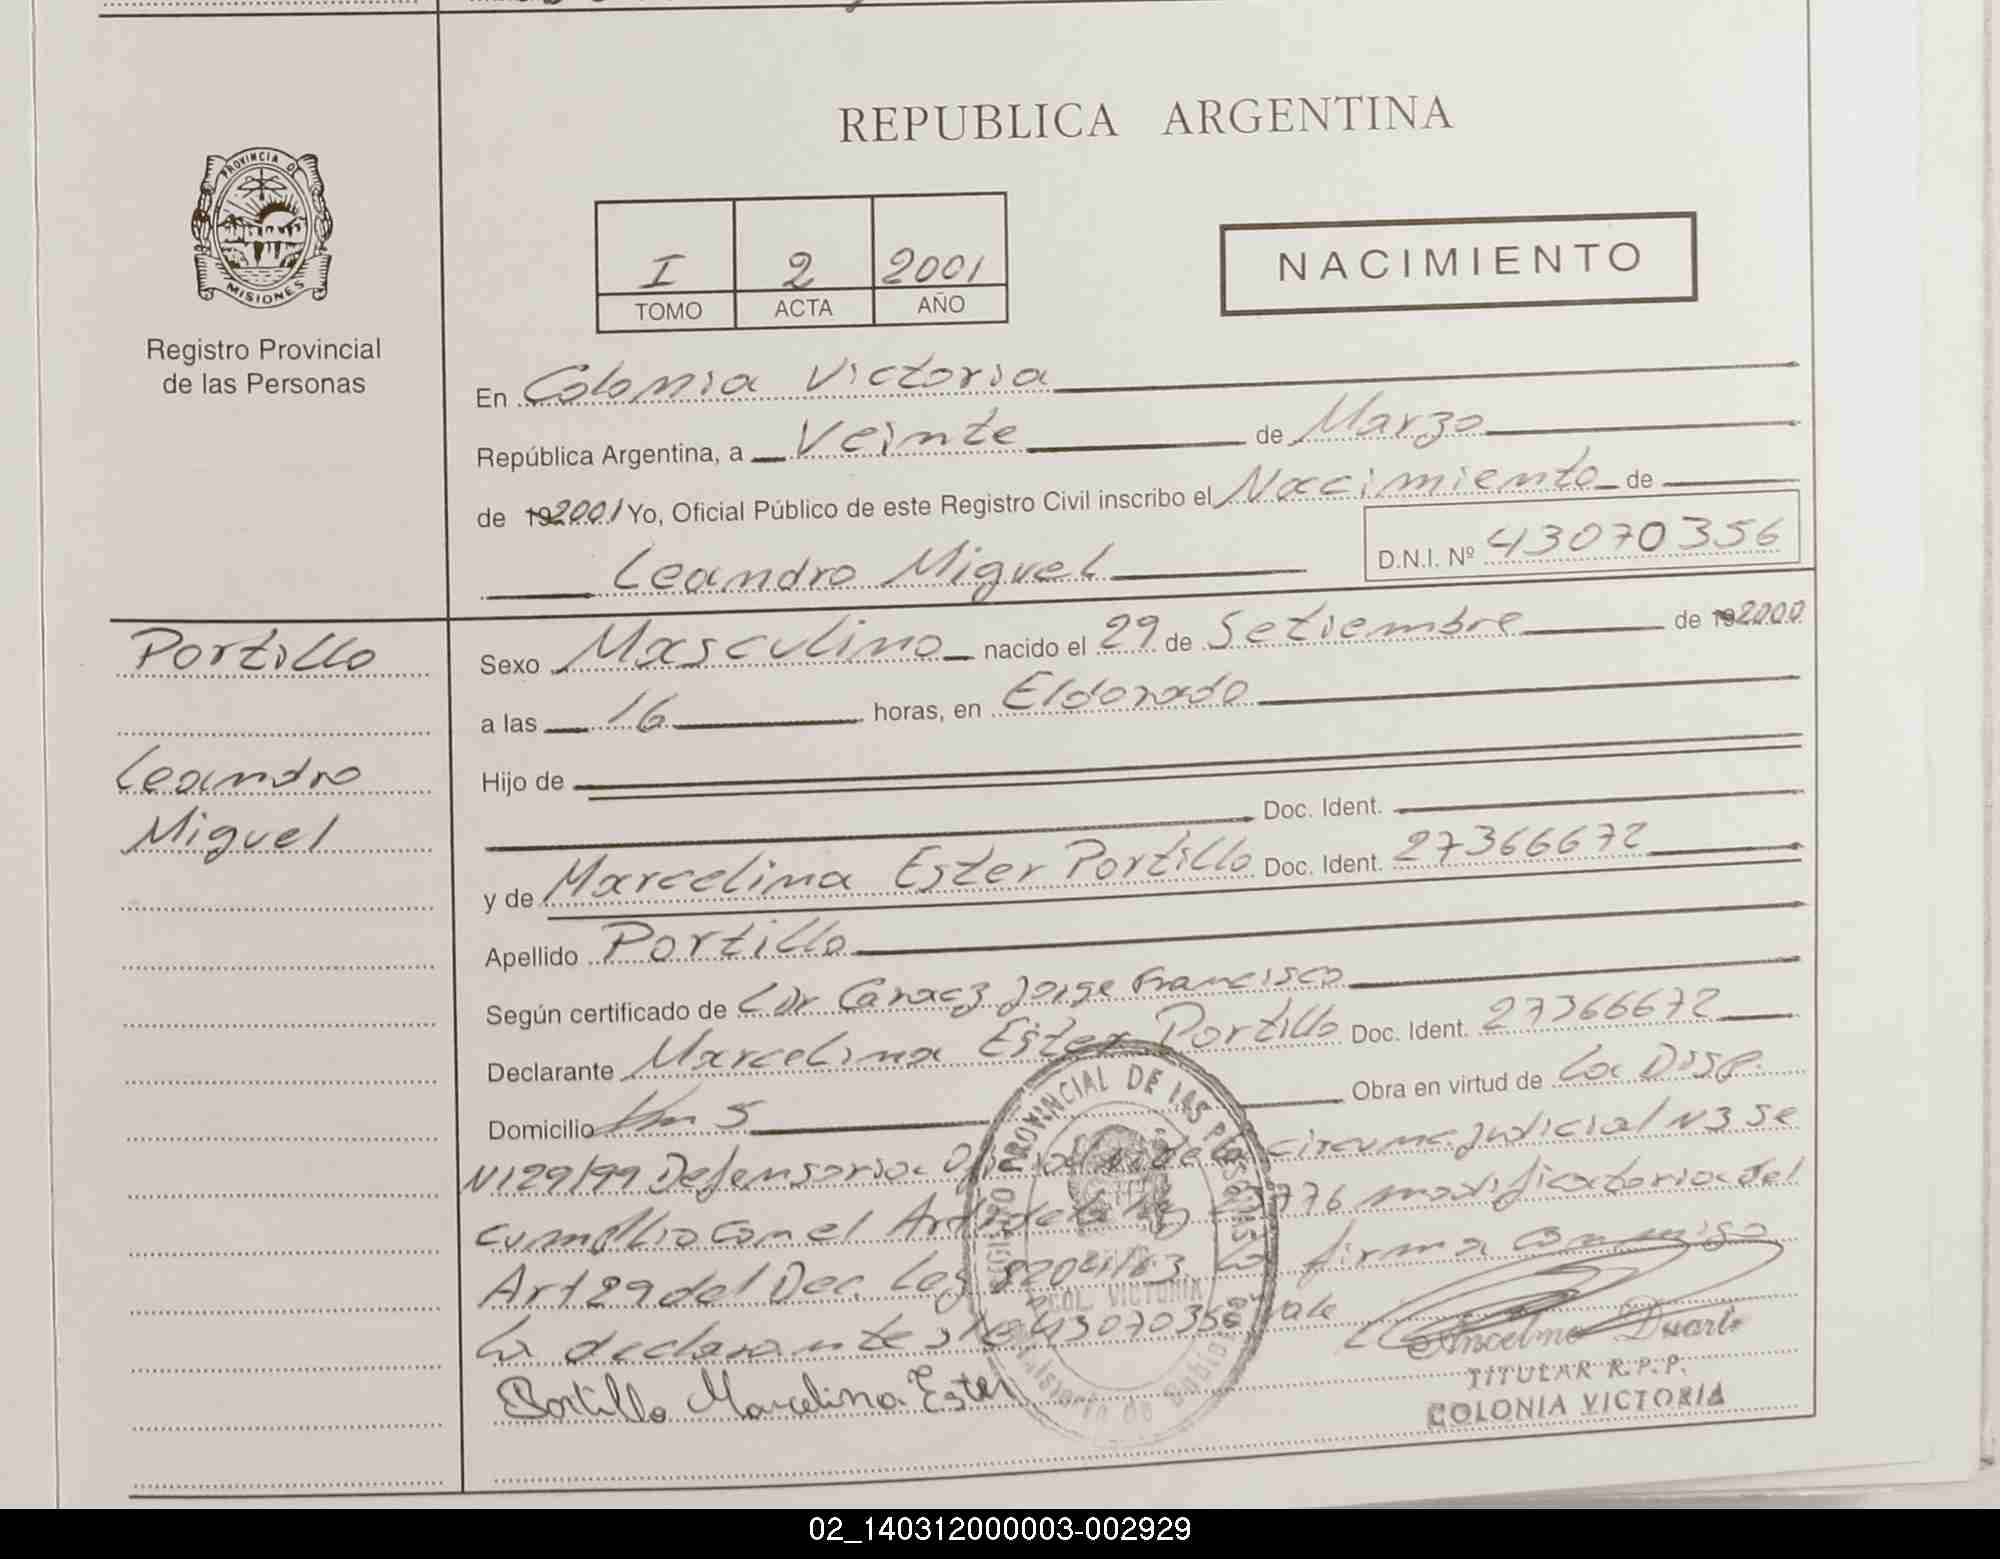 REPUBLICA ARGENTINA
PROVINCIA DE
MISIONES
Registro Provincial
de las Personas
I 2 2001
TOMO ACTA AÑO
NACIMIENTO
En Colonia Victoria
República Argentina, a Veinte de Marzo
de 192001 Yo, Oficial Público de este Registro Civil inscribo el Nacimiento de
Leandro Miguel D.N.I. Nº 43070356
Portillo
Leandro
Miguel
Sexo Masculino nacido el 29 de Setiembre de 192000
a las 16 horas, en Eldorado
Hijo de
Doc. Ident.
y de Marcelina Ester Portillo Doc. Ident. 27366672
Apellido Portillo
Según certificado de Jorge Francisco
Declarante Marcelina Ester Portillo Doc. Ident. 27366672
Domicilio Km 5 Obra en virtud de la Disp.
N129/99 Defensoria circunc. judicial N3 se
cumplio con el Art 23776 modificatoria del
Art 29 del Dec. Ley 8204/63 la firma conmigo
la declarante s/c 43070356 vale
Portillo Marcelina Ester
REGISTRO PROVINCIAL DE LAS PERSONAS
COL. VICTORIA
Ministerio de Gobierno
Ancelmo Duarte
TITULAR R.P.P.
COLONIA VICTORIA
02_140312000003-002929